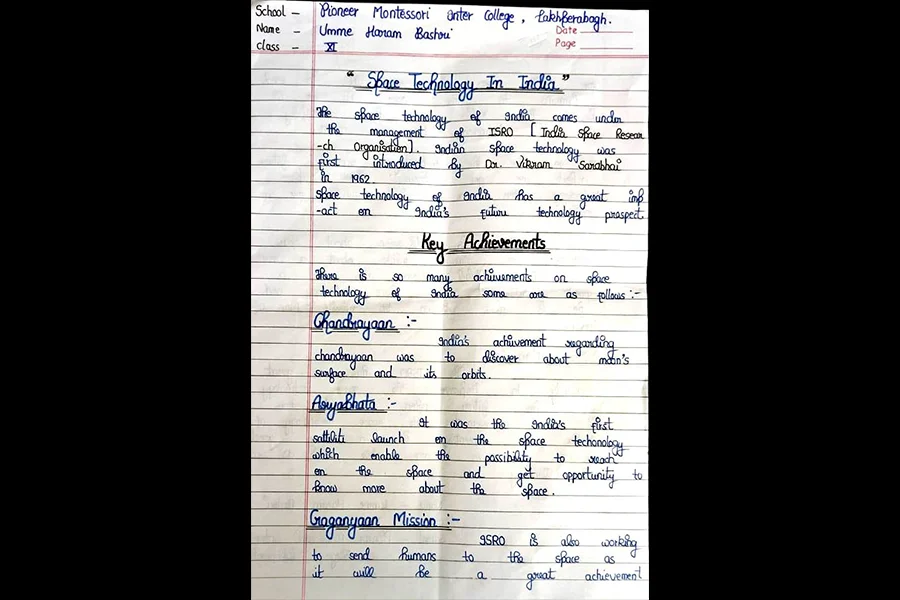 School - Pioneer Montessori Inter College, Lakhperabagh.
Name - Umme Hanam Bashri
Date
class - XI
Page
"Space Technology In India"
The space technology of India comes under
the management of ISRO [India Space Resear
-ch Organisation]. Indian space technology was
first introduced by Dr. Vikram Sarabhai
in 1962.
space technology of India has a great imp
-act on India's future technology prospect
Key Achievements
There is so many achievements on space
technology of India some are as follows :-
Chandrayaan :-
India's achievement regarding
chandrayaan was to discover about moon's
surface and its orbits.
Aryabhata :-
It was the India's first
sattliti launch on the space techonology
which enable the possibility to reach
on the space and get opportunity to
know more about the space.
Gaganyaan Mission :-
ISRO is also working
to send humans to the space as
it will be a great achievement